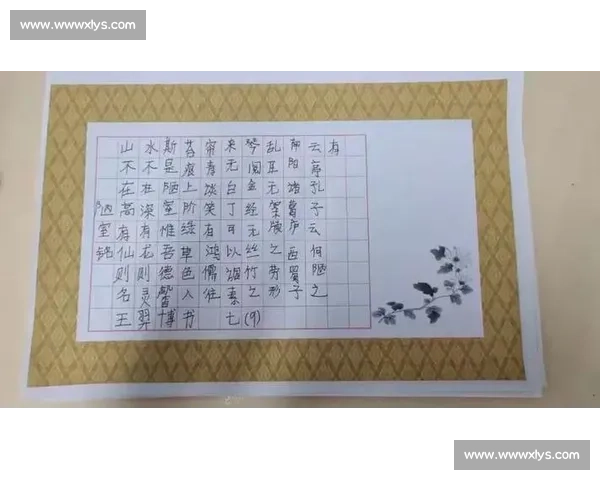 www.xlys.com
陋室铭
山不在高有仙则名
水不在深有龙则灵
斯是陋室惟吾德馨
苔痕上阶绿草色入
帘青谈笑有鸿儒往
来无白丁可以调素
琴阅金经无丝竹之
乱耳无案牍之劳形
南阳诸葛庐西蜀子
云亭孔子云何陋之
有
王羿博书 七(9)
www.xlys.com